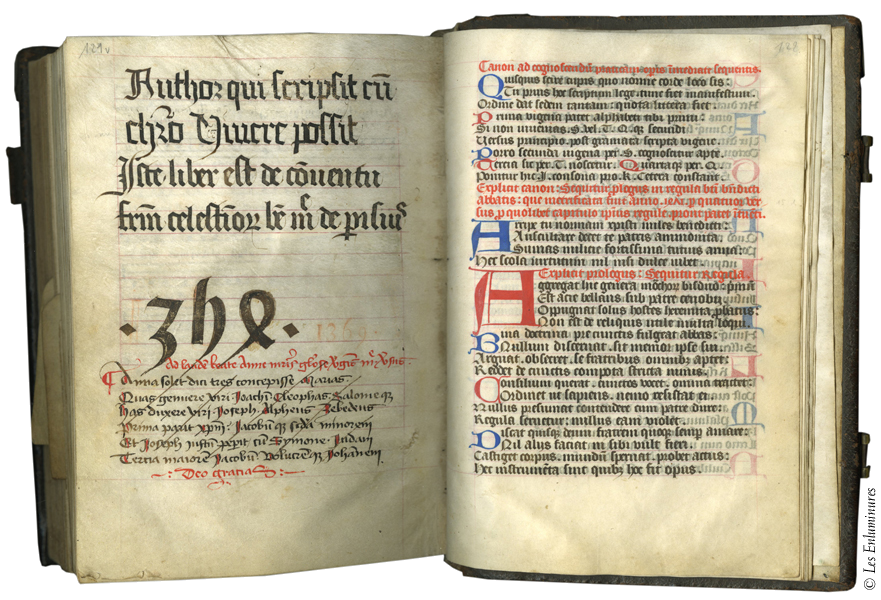 129v
Author qui scripsit cū
chrō Vivere possit
Iste liber est de cōventu
frm̄ celestinorz bē mͬ de parisiꝰ
· zhe ·
1369
Anna solet dici tres concepisse marias
Quas genuere viri Joachī Cleophas Salomeqz
has duxere viri Joseph Alpheus Zebedeus
Prima parit xpm̄ Jacobū qz sēda minorem
Et Joseph justū pepit cū Symone Judam
Tercia maiorē Jacobū Volucrē qz Johānem
Deo gracias
128
Canon ad cognoscendū operis īmediate sequentis.
Quisquis scire cupis quo nomine corde loco sis:
Tu prius hec scriptum lege. tunc fiet manifestum.
Ordine dat sedem tantam: quota luctera fiet
Prima vigena patet alphabeti tibi primi:
Si non invenias. S. vel. T. Q. qz secundi
Versus principio. post geminata scripta vigene
Porro secundi vigena per S. cognoscitur apte.
Tercia sit per. T. noscetur. Quartaqz per. Q.
Ponitur hic. I. consona pro. K. Cetera constant
Explicit canon: Sequitur plogus in regulā btī bndicti
abbatis: que metrificata fuit Anno per quatuor ver
sus p quolibet capitulo ipius regule. pront patet ītuēti.
Arripe tu normam xpisti miles benedicti:
Auscultare decet te patris ammonita.
Sumas milicie fortissima mitis arma:
Hec scola virtutum nil nisi dulce iubet.
Explicit prologus: Sequitur Regula
Aggregat hic genera mōchorz
Est acie bellans sub patre cenobii
Oppugnat solus hostes heremita
Non est de reliquis utile multa loqui
una doctrina pre cunctis fulgeat abbas:
Nullum discernat. sit memor ipse sui.
Arguat. obsecret. se fratribus omnibz aptet:
Reddet de cunctis compota stricta nimis.
Consilium querat. cunctos vocet. omnia tractet:
Ordinet ut sapiens. nemo resistat ei
Nullus presumat contendere cum patre dure:
Regula servetur: nullus eam violet.
Discat quisqz deum fratrem quoqz semper amare:
Nil alus faciat ni sibi vult fieri.
Castiget corpus. mundū spernat. probet actus:
Hec instrumēta sunt quibz hoc fit opus.
© Les Enluminures